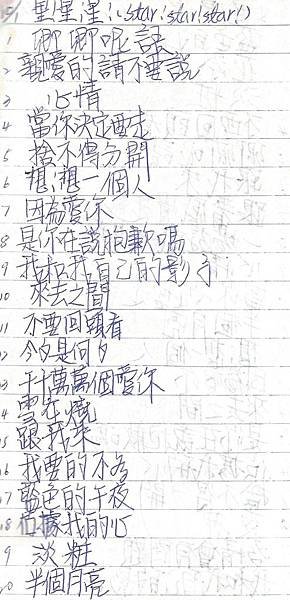 星星星!(star!star!star!)
1 卿卿呢話
2 親愛的請不要說
3 心情
4 當你決定要走
5 捨不得分開
6 想,想一個人
7 因為愛你
8 是你在說抱歉嗎
9 我和我自己的影子
10 來去之間
11 不要回頭看
12 今夕是何夕
13 千千萬萬個愛你
14 雪在燒
15 跟我來
16 我要的不多
17 藍色的午夜
18 佔據我的心
19 淡粧
20 半個月亮